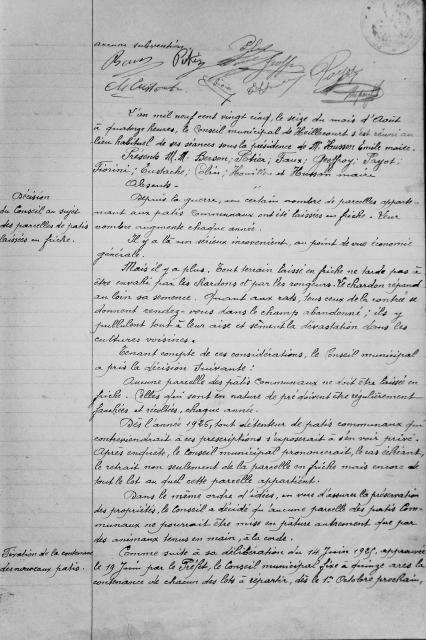 aucune subvention.
L'an mil neuf cent vingt cinq, le seize du mois d'Août
à quatorze heures, le Conseil municipal de Heillecourt s'est réuni au
lieu habituel de ses séances sous la présidence de M. Husson Emile maire.
Présents M.M. Berson, Potier, Faux, Geoffroy, Payot,
Fiorini, Eustache, Colin, Houillon et Husson maire
Absents -
Décision
du Conseil au sujet
des parcelles de patis
laissées en friche.
Depuis la guerre, un certain nombre de parcelles apparte-
nant aux patis communaux ont été laissées en friche. Leur
nombre augmente chaque année.
Il y a là un sérieux inconvenient, au point de vue économie
générale.
Mais il y a plus. Tout terrain laissé en friche ne tarde pas à
être envahi par les chardons et par les rongeurs. Le chardon répand
au loin sa semence. Quant aux rats, tous ceux de la contrée se
donnent rendez-vous dans le champ abandonné; ils y
pullulent tout à leur aise et sèment la dévastation dans les
cultures voisines.
Tenant compte de ces considérations, le Conseil municipal
a pris la décision suivante :
Aucune parcelle des patis communaux ne doit être laissée en
friche. Celles qui sont en nature de pré doivent être régulièrement
fauchées et récoltées, chaque année.
Dès l'année 1926, tout détenteur de patis communaux qui
contreviendrait à ces prescriptions s'exposerait à s'en voir privé.
Après enquête, le Conseil municipal prononcerait, le cas échéant,
le retrait non seulement de la parcelle en friche mais encore de
tout le lot au quel cette parcelle appartient.
Dans le même ordre d'idées, en vue d'assurer la préservation
des propriétés, le Conseil a décidé qu'aucune parcelle des patis com-
munaux ne pourrait être mise en pâture autrement que par
des animaux tenus en main, à la corde.
Fixation de la contenance
des nouveaux patis.
Comme suite à sa délibération du 14 Juin 1925, approuvée
le 19 Juin par le Préfet, le Conseil municipal fixe à quinze ares la
contenance de chacun des lots à répartir, dès le 1er Octobre prochain,